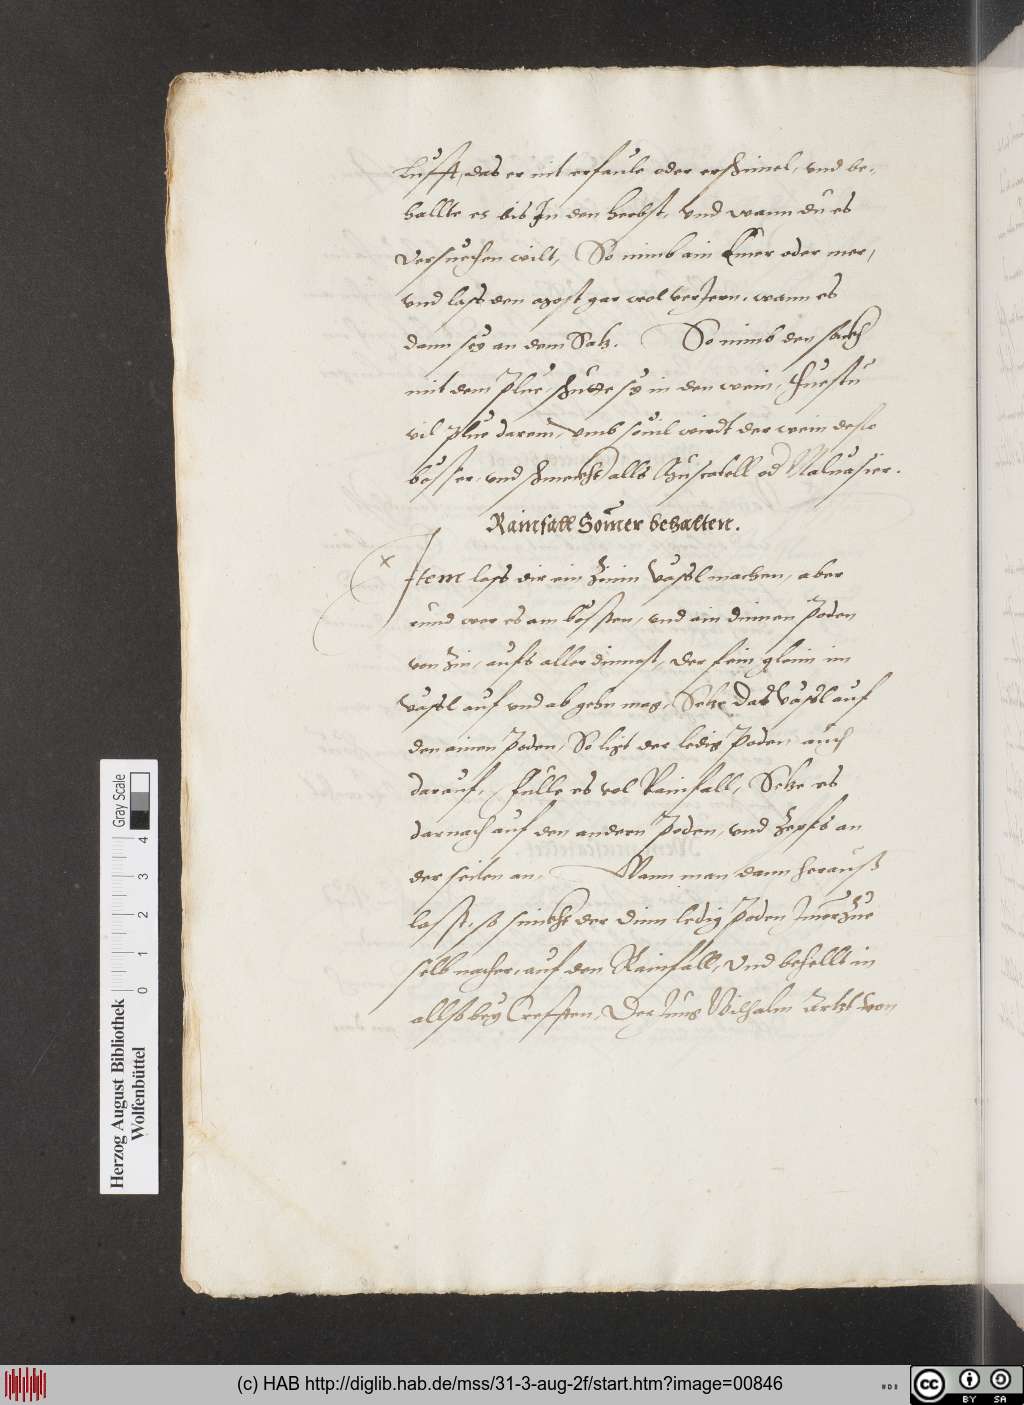 Lufft, das er nit erfaule oder erschimel, vnd be-
hallte es bis In den herbst, vnd wann du es
versuechen wilt, So nimb ain Emer oder mer,
vnd lass den most gar wol verJern, wann es
dann sey an dem Satz. So nimb den sackh
mit dem plue, schütte sy in den wein, thuestu
vil plue darein, vmb souil wirdt der wein desto
besser, vnd schmeckht alls Muscatell od Maluasier.
Rainfall Somer behalten.
Item lass dir ein Zinin Vässl machen, aber
rund wer es am bessten, vnd ain dinnen Poden
von Zin, aufs aller dinnest, der fein gleim im
Vässl auf vnd ab gehn mög, Setze das Vässl auf
den ainen Poden, So ligt der ledig Poden auch
darauf, Fülle es vol Rainfall, Setze es
darnach auf den andern Poden, vnd Zepfs an
der seiten an, Wann man dann herauß
lasst, so sinckht der dinn ledig Poden Jmerzue
selb nacher, auf den Rainfall, Vnd behellt in
allso bey Crefften, Der Jung Wilhalm Artzt von
Herzog August Bibliothek
Wolfenbüttel
0 1 2 3 4
Gray Scale
(c) HAB http://diglib.hab.de/mss/31-3-aug-2f/start.htm?image=00846
cc BY SA